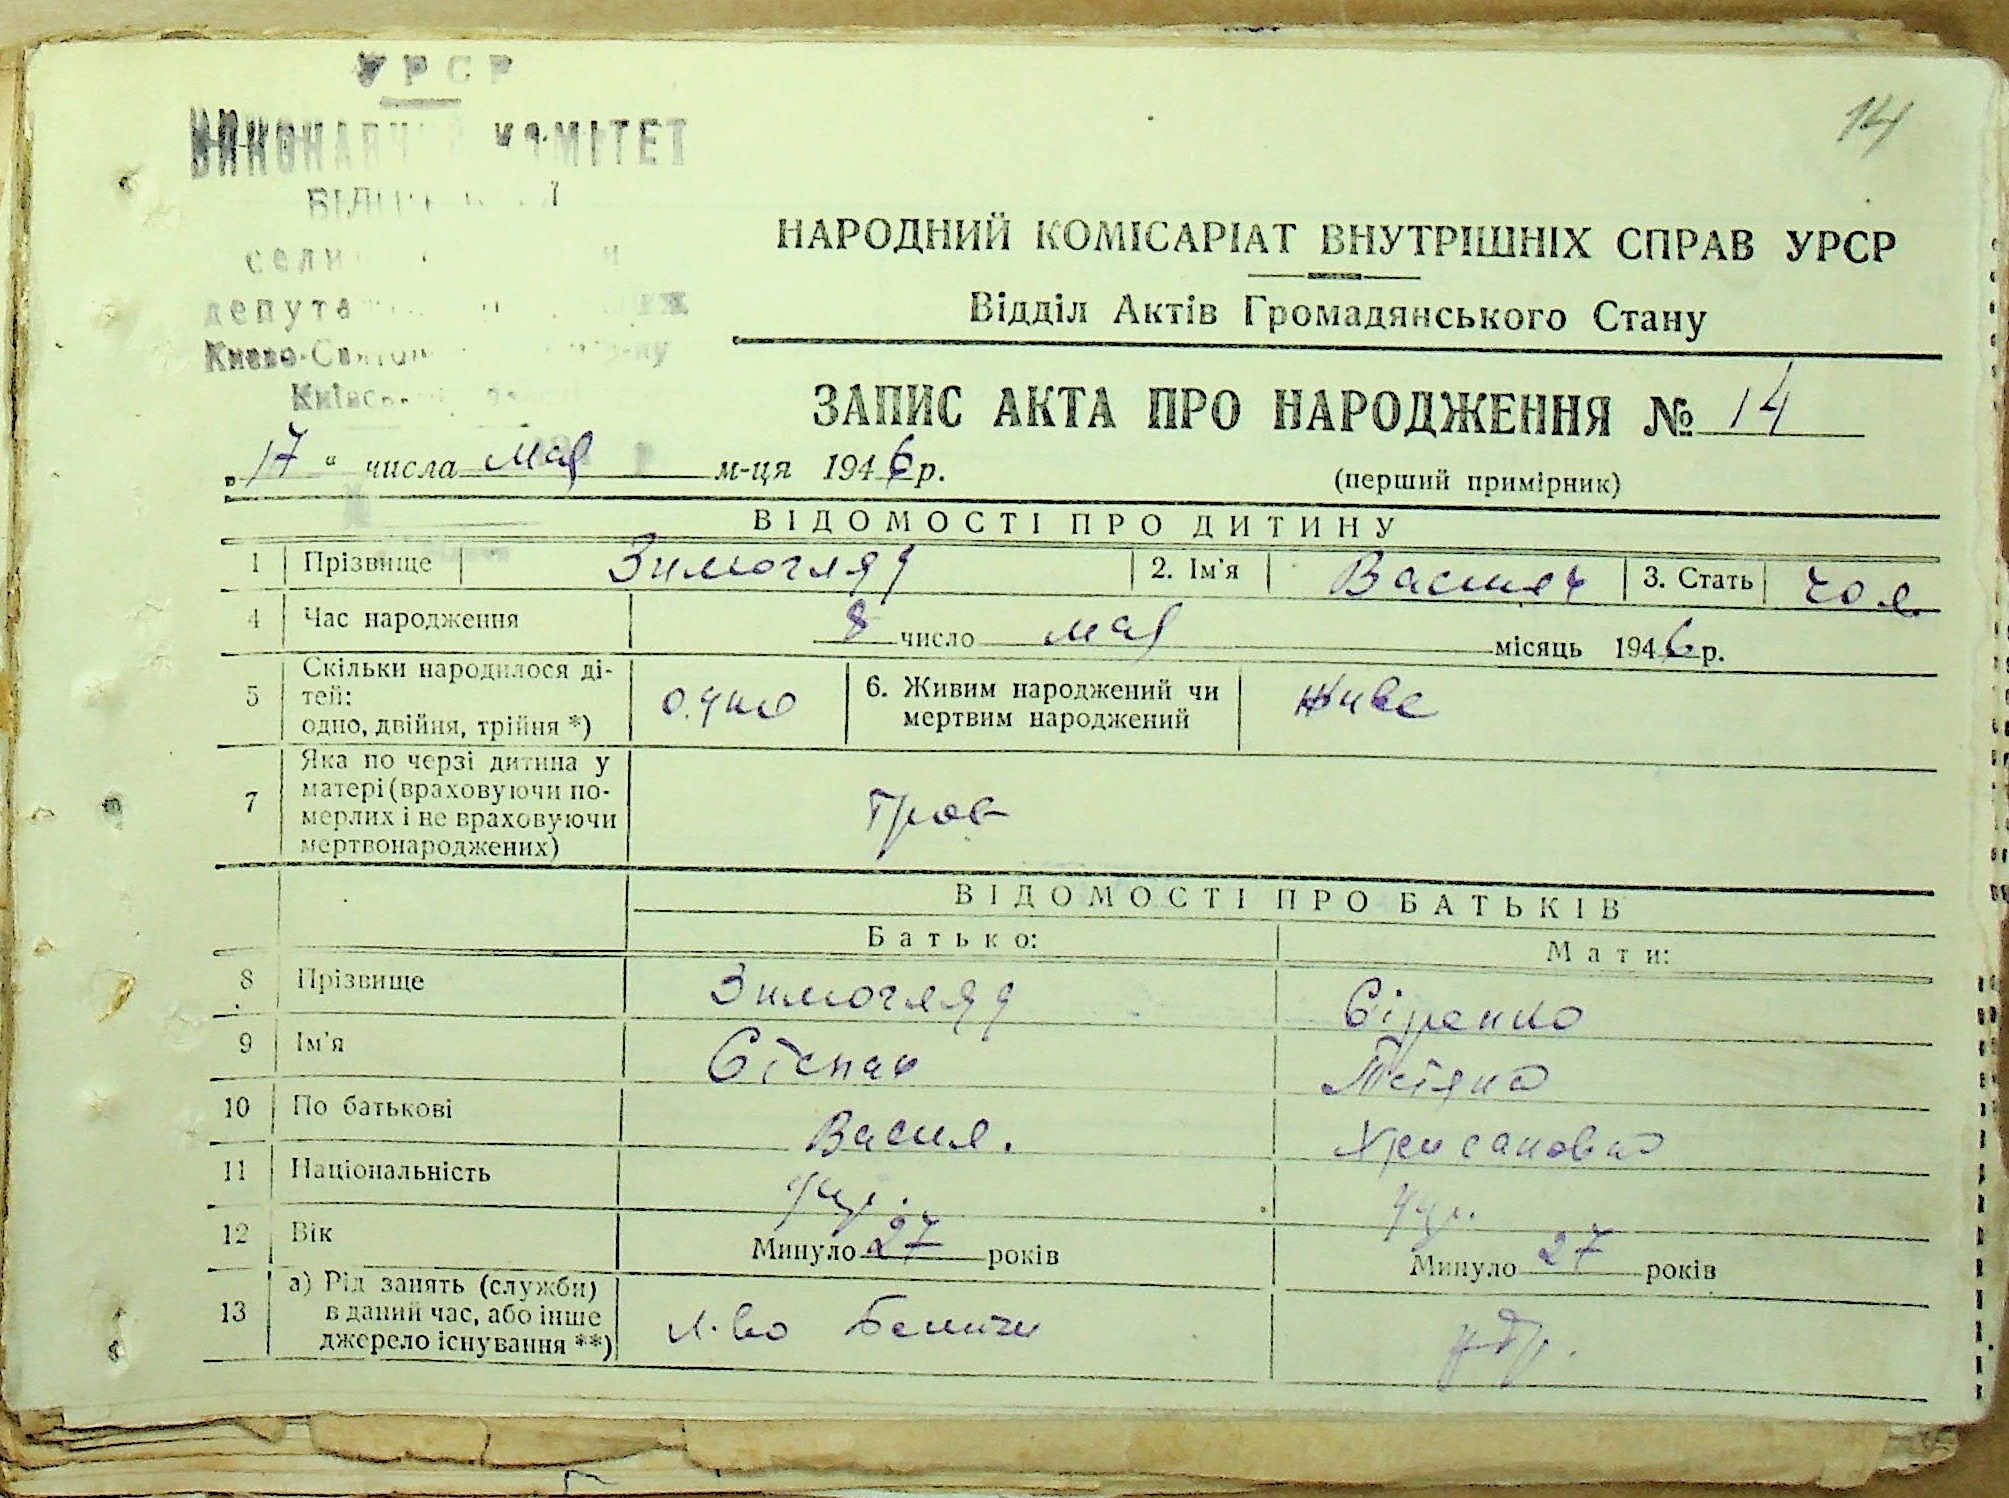 УРСР
ВИКОНАВЧ КОМІТЕТ
14
НАРОДНИЙ КОМІСАРІАТ ВНУТРІШНІХ СПРАВ УРСР
Відділ Актів Громадянського Стану
ЗАПИС АКТА ПРО НАРОДЖЕННЯ № 14
„17" числа мая м-ця 1946 р.
(перший примірник)
ВІДОМОСТІ ПРО ДИТИНУ
1 Прізвище Зимогляд 2. Ім'я Василь 3. Стать чол.
4 Час народження 8 число мая місяць 1946 р.
5 Скільки народилося ді-
тей:
одно, двійня, трійня *) одно
6. Живим народжений чи
мертвим народжений живе
7 Яка по черзі дитина у
матері (враховуючи по-
мерлих і не враховуючи
мертвонароджених)
ВІДОМОСТІ ПРО БАТЬКІВ
Батько: Мати:
8 Прізвище Зимогляд Сіренко
9 Ім'я Степан Тетяна
10 По батькові Васил. Хрисановна
11 Національність укр. укр.
12 Вік Минуло 27 років Минуло 27 років
13 а) Рід занять (служби)
в даний час, або інше
джерело існування **)